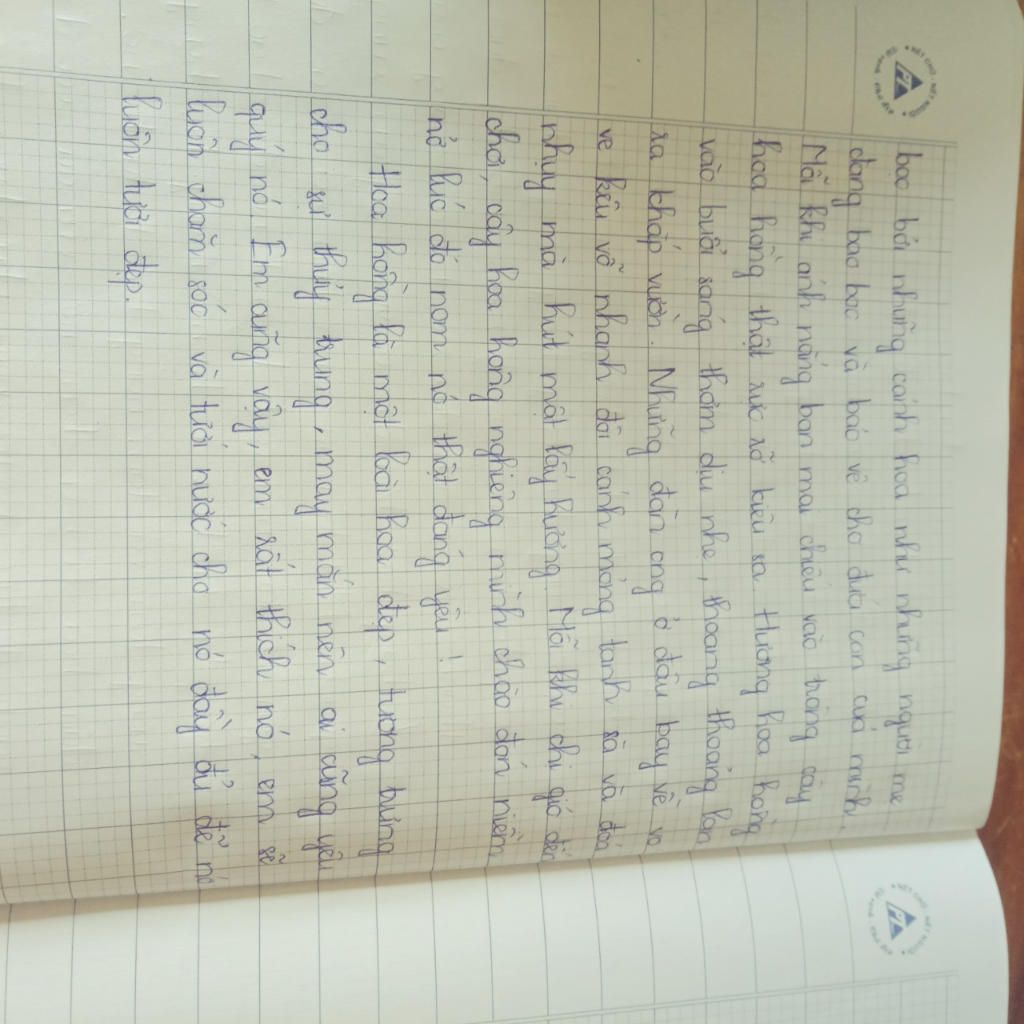 bọc bởi những cánh hoa như những người mẹ
đang bao bọc và bảo vệ cho đứa con của mình.
Mỗi khi ánh nắng ban mai chiếu vào trông cây
hoa hồng thật rực rỡ kiêu sa. Hương hoa hồng
vào buổi sáng thơm dịu nhẹ, thoang thoảng lan
ra khắp vườn. Những đàn ong ở đâu bay về vo
ve kêu vỗ nhanh đôi cánh mỏng tanh sà và đoá
nhụy mà hút mật lấy hương. Mỗi khi chị gió đến
chơi, cây hoa hồng nghiêng mình chào đón niềm
nở lúc đó nom nó thật đáng yêu!
Hoa hồng là một loài hoa đẹp, tượng trưng
cho sự thủy trung, may mắn nên ai cũng yêu
quý nó. Em cũng vậy, em rất thích nó, em sẽ
luôn chăm sóc và tưới nước cho nó đầy đủ để nó
luôn tươi đẹp.
NÉT CHỮ - NẾT NGƯỜI
NÉT CHỮ - NẾT NGƯỜI